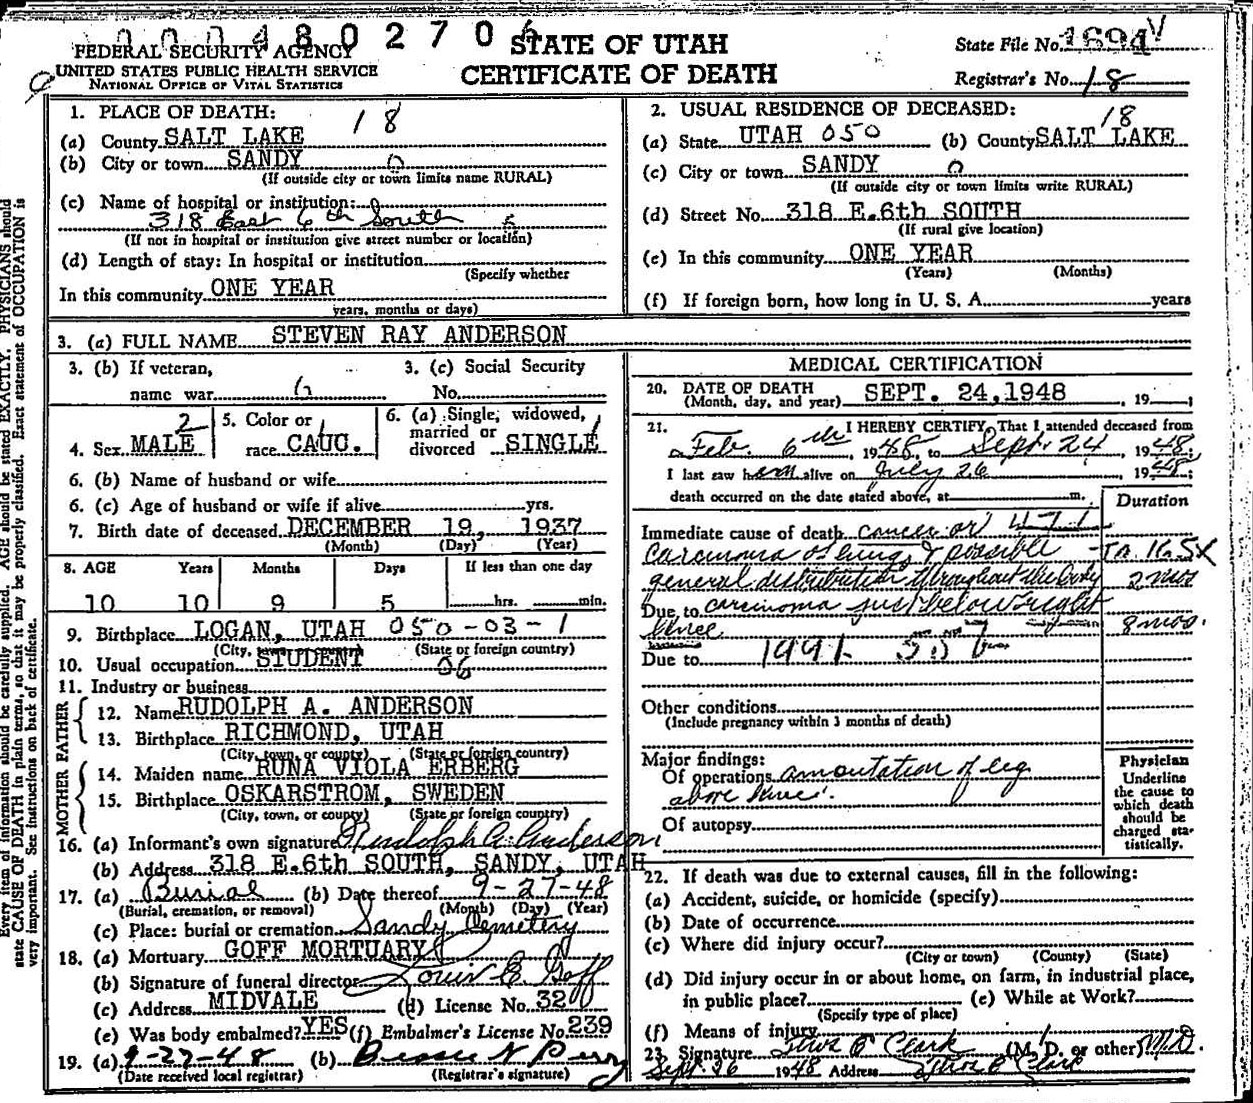 000480270
FEDERAL SECURITY AGENCY
UNITED STATES PUBLIC HEALTH SERVICE
NATIONAL OFFICE OF VITAL STATISTICS
STATE OF UTAH
CERTIFICATE OF DEATH
State File No. 1694
Registrar's No. 18
1. PLACE OF DEATH: 18
(a) County SALT LAKE
(b) City or town SANDY 0
(If outside city or town limits name RURAL)
(c) Name of hospital or institution:
318 East 6th South
(If not in hospital or institution give street number or location)
(d) Length of stay: In hospital or institution
(Specify whether
In this community ONE YEAR
years, months or days)
2. USUAL RESIDENCE OF DECEASED: 18
(a) State UTAH 050 (b) County SALT LAKE
(c) City or town SANDY 0
(If outside city or town limits write RURAL)
(d) Street No. 318 E.6th SOUTH
(If rural give location)
(e) In this community ONE YEAR
(Years) (Months)
(f) If foreign born, how long in U. S. A. years
3. (a) FULL NAME STEVEN RAY ANDERSON
3. (b) If veteran,
name war
3. (c) Social Security
No.
4. Sex MALE 2
5. Color or
race CAUC. 1
6. (a) Single, widowed,
married or
divorced SINGLE 1
6. (b) Name of husband or wife
6. (c) Age of husband or wife if alive yrs.
7. Birth date of deceased DECEMBER 19, 1937
(Month) (Day) (Year)
8. AGE Years Months Days If less than one day
10 10 9 5 hrs. min.
9. Birthplace LOGAN, UTAH 050-03-1
(City, town or county) (State or foreign country)
10. Usual occupation STUDENT
11. Industry or business
FATHER
12. Name RUDOLPH A. ANDERSON
13. Birthplace RICHMOND, UTAH
(City, town, or county) (State or foreign country)
MOTHER
14. Maiden name RUNA VIOLA ERBERG
15. Birthplace OSKARSTROM, SWEDEN
(City, town, or county) (State or foreign country)
16. (a) Informant's own signature Rudolph A. Anderson
(b) Address 318 E.6th SOUTH, SANDY, UTAH
17. (a) Burial (b) Date thereof 9-27-48
(Burial, cremation, or removal) (Month) (Day) (Year)
(c) Place: burial or cremation Sandy Cemetery
18. (a) Mortuary GOFF MORTUARY
(b) Signature of funeral director Louis E. Goff
(c) Address MIDVALE (d) License No. 320
(e) Was body embalmed? YES (f) Embalmer's License No. 239
19. (a) 9-27-48 (b) Bessie N Perry
(Date received local registrar) (Registrar's signature)
MEDICAL CERTIFICATION
20. DATE OF DEATH
(Month, day, and year) SEPT. 24,1948 , 19 ;
21. I HEREBY CERTIFY, That I attended deceased from
Feb. 6th , 1948, to Sept. 24 , 1948;
I last saw him alive on July 26 1948;
death occurred on the date stated above, at m.
Duration
Immediate cause of death cancer or 471
carcinoma of lung & possible
general distribution throughout the body 2 mos
Due to carcinoma just below right
knee 8 mos.
Due to 1991
Other conditions
(Include pregnancy within 3 months of death)
Major findings:
Of operations amputation of leg
above knee.
Of autopsy
Physician
Underline
the cause to
which death
should be
charged sta-
tistically.
22. If death was due to external causes, fill in the following:
(a) Accident, suicide, or homicide (specify)
(b) Date of occurrence
(c) Where did injury occur?
(City or town) (County) (State)
(d) Did injury occur in or about home, on farm, in industrial place,
in public place? (e) While at Work?
(Specify type of place)
(f) Means of injury
23. Signature Thos E Clark (M. D. or other) M.D.
Sept. 26 1948 Address Thos E Clark
Every item of information should be carefully supplied. AGE should be stated EXACTLY. PHYSICIANS should
state CAUSE OF DEATH in plain terms, so that it may be properly classified. Exact statement of OCCUPATION is
very important. See instructions on back of certificate.